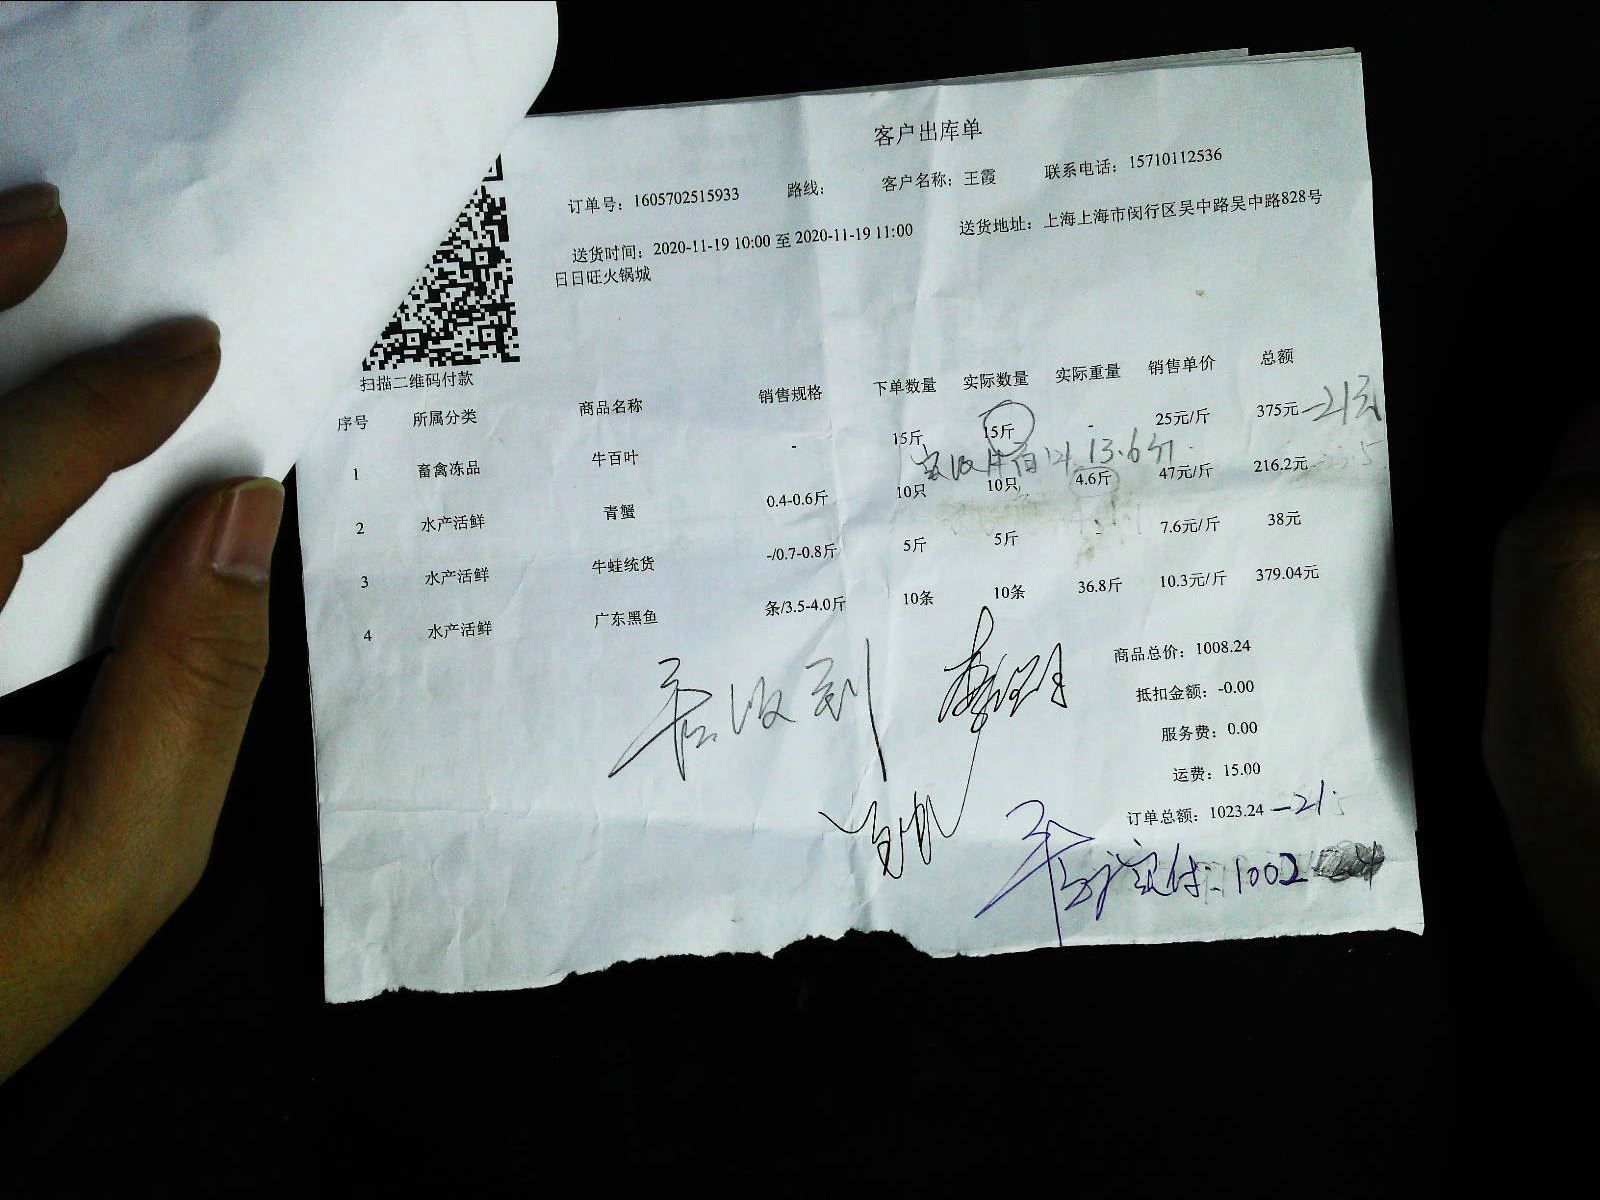 客户出库单
订单号：1605702515933 路线： 客户名称：王霞 联系电话：15710112536
送货时间：2020-11-19 10:00 至 2020-11-19 11:00 送货地址：上海上海市闵行区吴中路吴中路828号
日日旺火锅城
扫描二维码付款
序号 所属分类 商品名称 销售规格 下单数量 实际数量 实际重量 销售单价 总额
1 畜禽冻品 牛百叶 - 15斤 15斤 - 25元/斤 375元 -21元
实收牛百叶 13.6斤
2 水产活鲜 青蟹 0.4-0.6斤 10只 10只 4.6斤 47元/斤 216.2元
3 水产活鲜 牛蛙统货 -/0.7-0.8斤 5斤 5斤 - 7.6元/斤 38元
4 水产活鲜 广东黑鱼 条/3.5-4.0斤 10条 10条 36.8斤 10.3元/斤 379.04元
商品总价：1008.24
抵扣金额：-0.00
服务费：0.00
运费：15.00
订单总额：1023.24 -21.
收到
实付：1002